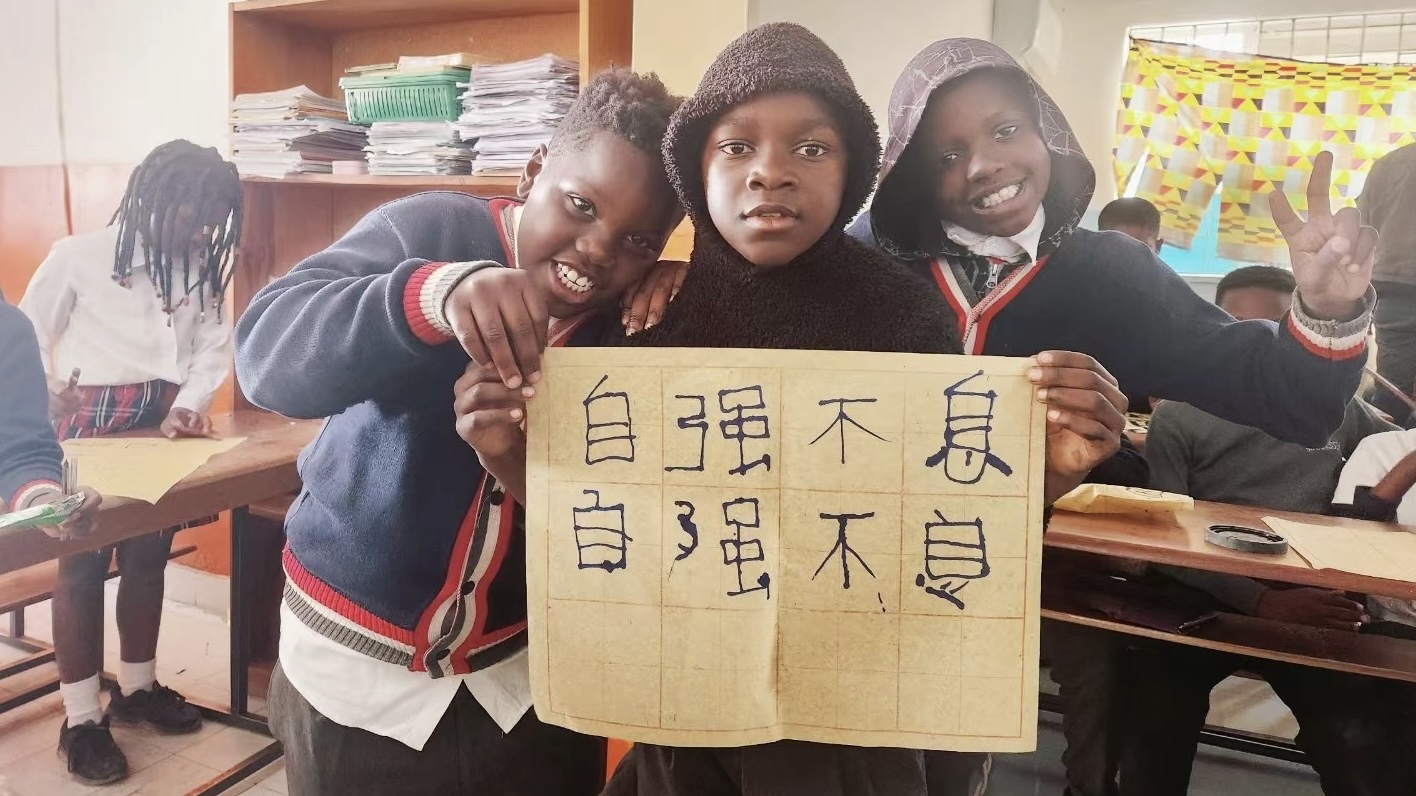 自强不息
自强不息